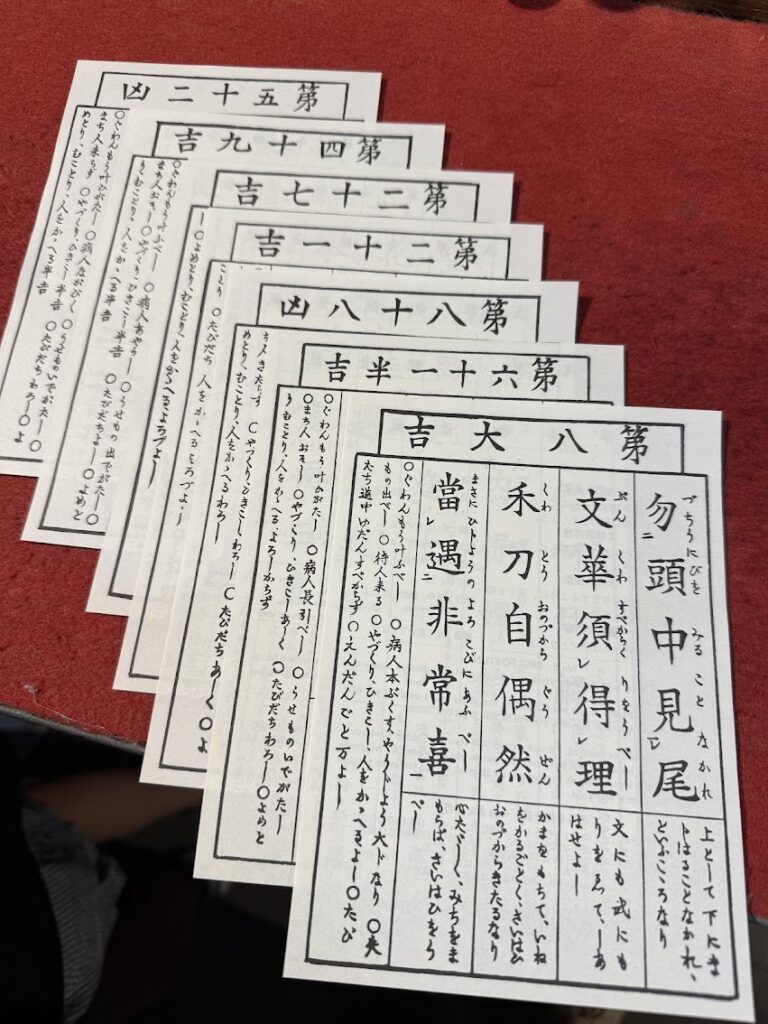 第五十二凶
◯ぐわんもう叶ひがたー ◯病人あおびく ◯うせものいでがたー ◯
まち人来らず ◯やづくり、ひきこー半吉 ◯たびだちわろー◯よ
めとり、むことり、人をかゝへる半吉
第四十九吉
◯ぐわんもう叶ふべー ◯病人あやうー ◯うせもの出でがたー◯
まち人おそー ◯やづくり、ひきこー半吉 ◯たびだちよー◯よめと
り、むことり、人をかゝへる半吉
第二十七吉
ー ◯よめとり、むことり、人をかゝへるよろづよー
第二十一吉
ことり ◯たびだち 人をかゝへるよろづよー
第八十八凶
ち人きたらず ◯やづくり、ひきこーわろー ◯たびだちあーく◯よ
めとり、むことり、人をかゝへるわろー
第六十一半吉
◯ぐわんもう叶ひがたー ◯病人長引べー ◯うせものいでがたー
◯まち人おそー ◯やづくり、ひきこーあーく ◯たびだちわろー◯よめと
り、むことり、人をかゝへる、よろーからず
第八大吉
づちうにびを みること なかれ
勿二頭中見レ尾
上とーて下にま
トはることなかれ、
といふこゝろなり
ぶん くわ すべからく りをうべー
文華須レ得レ理
文にも武にも
りをえって、ーあ
はせよー
くわ とう おのづから ぐう せん
禾刀自偶然
かまをもちて、いね
をかるごとく、さいはひ
おのづからきたるなり
まさに ひじようの よろこびに あふべー
當レ遇二非常喜一
心たゞーく、みちをま
もらば、さいはひをう
べー
◯ぐわんもう叶ふべー ◯病人本ぶくす、やうトよう大トなり ◯失
もの出べー ◯待人来る ◯やづくり、ひきこー、人をかゝへるよー◯たび
たち道中ゆだんすべからず ◯えんだんごと万よー